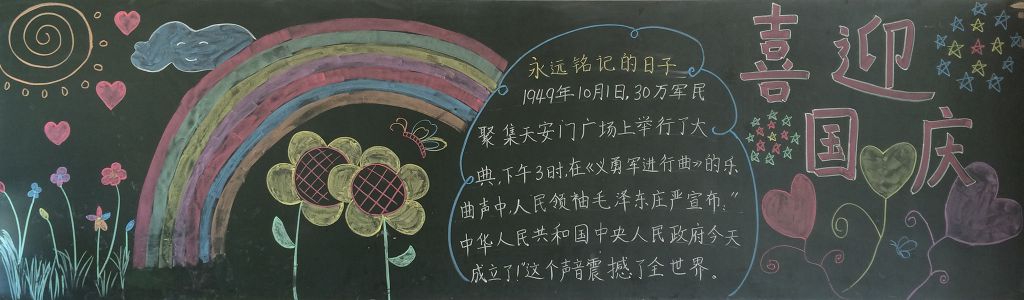 永远铭记的日子
1949年10月1日,30万军民
聚集天安门广场上举行了大
典,下午3时,在《义勇军进行曲》的乐
曲声中,人民领袖毛泽东庄严宣布:"
中华人民共和国中央人民政府今天
成立了!"这个声音震撼了全世界。
喜迎
国庆